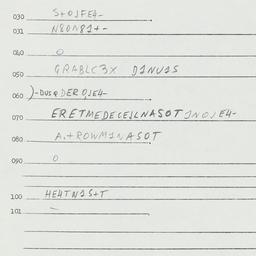 030 S+OJFE4-
031 N8ON81+-
040 O
050 GRABLC3X D1NU1S
060 )-DUSQDEROJE4-
070 ERETMEDECEJLNASOT JNOJE4-
080 A.+ROWM1NASOT
090 O
100 HE4TN1S+T
101 -